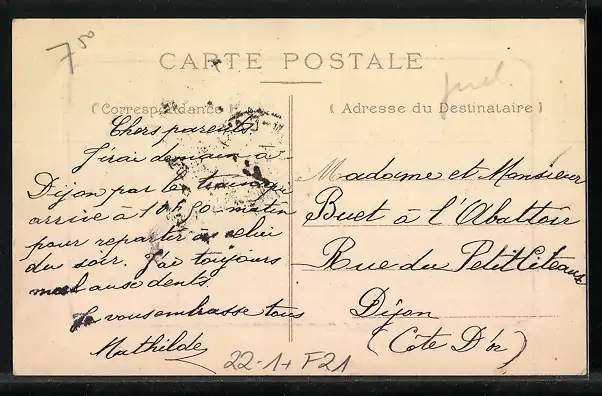 7.50
CARTE POSTALE
(Correspondance
( Adresse du Destinataire )
Chers parents.
J'irai demain à
Dijon par le
arrive à 10h matin
pour repartir à celui
du soir. J'ai toujours
mal aux dents.
Je vous embrasse tous
Mathilde
Madame et Monsieur
Buet à l'Abattoir
Rue du Petit Citeaux
Dijon
(Côte D'or)
22-1+ F21